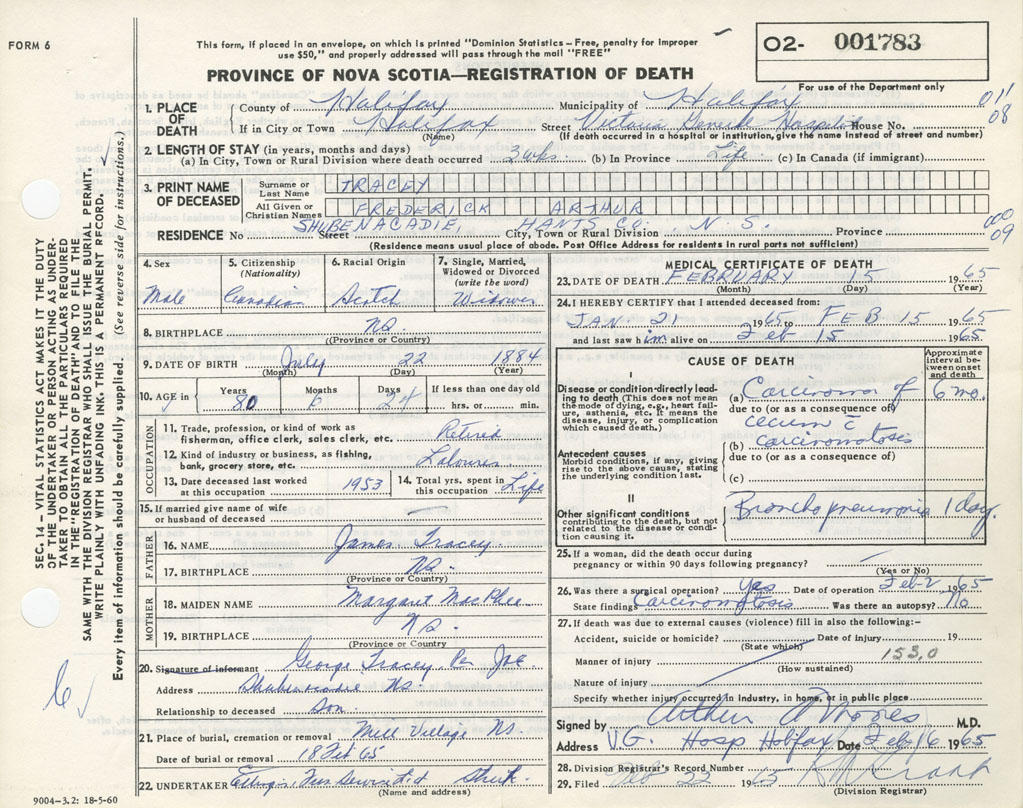 FORM 6
This form, if placed in an envelope, on which is printed "Dominion Statistics – Free, penalty for improper
use $50," and properly addressed will pass through the mail "FREE"
PROVINCE OF NOVA SCOTIA—REGISTRATION OF DEATH
O2- 001783
For use of the Department only
1. PLACE OF DEATH County of Halifax Municipality of Halifax 011
If in City or Town Halifax Street Victoria General Hospital House No. 08
(Name) (If death occurred in a hospital or institution, give the name instead of street and number)
2. LENGTH OF STAY (in years, months and days)
(a) In City, Town or Rural Division where death occurred 3 wks. (b) In Province Life (c) In Canada (if immigrant)
3. PRINT NAME OF DECEASED Surname or Last Name TRACEY
All Given or Christian Names FREDERICK ARTHUR
RESIDENCE No SHUBENACADIE, Street HANTS CO. City, Town or Rural Division N. S. Province 000 09
(Residence means usual place of abode. Post Office Address for residents in rural parts not sufficient)
4. Sex 5. Citizenship (Nationality) 6. Racial Origin 7. Single, Married, Widowed or Divorced (write the word)
Male Canadian Scotch Widower
8. BIRTHPLACE NS.
(Province or Country)
9. DATE OF BIRTH July 22 1884
(Month) (Day) (Year)
10. AGE in Years 80 Months 6 Days 24 If less than one day old hrs. or min.
OCCUPATION
11. Trade, profession, or kind of work as fisherman, office clerk, sales clerk, etc. Retired
12. Kind of industry or business, as fishing, bank, grocery store, etc. Labourer
13. Date deceased last worked at this occupation 1953 14. Total yrs. spent in this occupation Life
15. If married give name of wife or husband of deceased
FATHER
16. NAME James Tracey
17. BIRTHPLACE NS.
(Province or Country)
MOTHER
18. MAIDEN NAME Margaret MacPhee
19. BIRTHPLACE NS.
(Province or Country)
20. Signature of informant George Tracey Per
Address Shubenacadie NS.
Relationship to deceased Son.
21. Place of burial, cremation or removal Mill Village NS.
Date of burial or removal 18 Feb 65
22. UNDERTAKER
(Name and address)
9004–3.2: 18-5-60
MEDICAL CERTIFICATE OF DEATH
23. DATE OF DEATH FEBRUARY 15 1965
(Month) (Day) (Year)
24. I HEREBY CERTIFY that I attended deceased from:
JAN. 21 1965 to FEB 15 1965
and last saw him alive on Feb 15 1965
CAUSE OF DEATH
Approximate interval between onset and death
I
Disease or condition directly leading to death (This does not mean the mode of dying, e.g., heart failure, asthenia, etc. It means the disease, injury, or complication which caused death.)
(a) Carcinoma of 6 mo.
due to (or as a consequence of)
cecum c̄
(b) carcinomatosis
due to (or as a consequence of)
(c)
Antecedent causes
Morbid conditions, if any, giving rise to the above cause, stating the underlying condition last.
II
Other significant conditions contributing to the death, but not related to the disease or condition causing it.
Bronchopneumonia 1 day.
25. If a woman, did the death occur during
pregnancy or within 90 days following pregnancy?
(Yes or No)
26. Was there a surgical operation? Yes Date of operation Feb-2 1965
State findings Carcinomatosis Was there an autopsy? No
27. If death was due to external causes (violence) fill in also the following:–
Accident, suicide or homicide? Date of injury 19
(State which)
Manner of injury 153,0
(How sustained)
Nature of injury
Specify whether injury occurred in Industry, in home, or in public place
Signed by Arthur M.D.
Address V.G. Hosp Halifax Date Feb 16 1965
28. Division Registrar's Record Number
29. Filed Feb 22 1965
(Division Registrar)
SEC. 14 – VITAL STATISTICS ACT MAKES IT THE DUTY
OF THE UNDERTAKER OR PERSON ACTING AS UNDER-
TAKER TO OBTAIN ALL THE PARTICULARS REQUIRED
IN THE "REGISTRATION OF DEATH" AND TO FILE THE
SAME WITH THE DIVISION REGISTRAR WHO SHALL ISSUE THE BURIAL PERMIT.
WRITE PLAINLY WITH UNFADING INK. THIS IS A PERMANENT RECORD.
Every item of information should be carefully supplied. (See reverse side for instructions.)